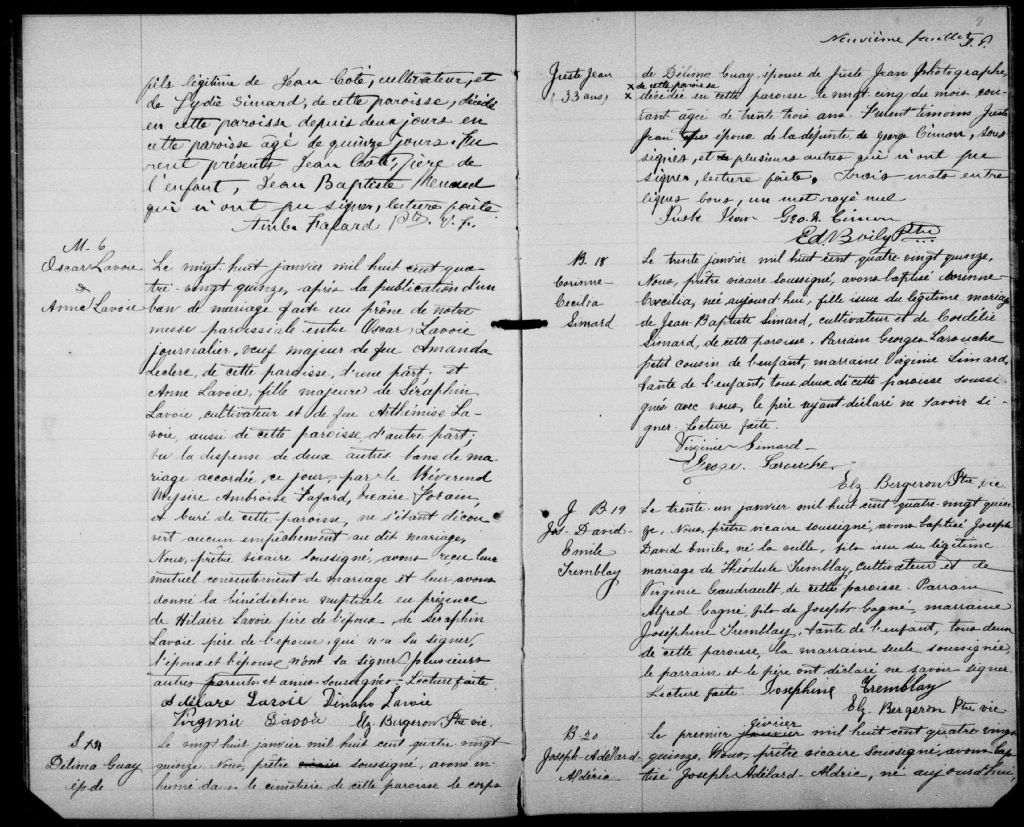 fils légitime de Jean Coté, cultivateur, et
de Lydie Simard, de cette paroisse, décédé
en cette paroisse depuis deux jours en
cette paroisse âgé de quinze jours. Fu
rent présents Jean Coté, père de
l'enfant, Jean Baptiste Menard
qui n'ont pu signer, lecture faite
Amb. Fafard Ptre. V. F.
M. 6
Oscar Lavoie
&
Anne Lavoie
Le vingt-huit janvier mil huit cent qua
tre-vingt quinze, après la publication d'un
ban de mariage faite au prône de notre
messe paroissiale entre Oscar Lavoie
journalier, veuf majeur de feu Amanda
Leclerc, de cette paroisse, d'une part, et
Anne Lavoie, fille majeure de Séraphin
Lavoie, cultivateur et de feu Arthémise La-
voie, aussi de cette paroisse, d'autre part;
vu la dispense de deux autres bans de ma-
riage accordée, ce jour, par le Révérend
Messire Ambroise Fafard, Vicaire Forain,
et Curé de cette paroisse, ne s'étant décou
vert aucun empêchement au dit mariage,
Nous, prêtre vicaire soussigné, avons reçu leur
mutuel consentement de mariage et leur avons
donné la bénédiction nuptiale en présence
de Hilaire Lavoie père de l'époux, de Séraphin
Lavoie père de l'épouse, qui n'a su signer,
l'époux et l'épouse n'ont su signer, plusieurs
autres parents et amis soussignés. Lecture faite
Adélare Lavoie Dinaho Lavoie
Virginie Lavoie Elz. Bergeron Ptre vic.
S. 13
Délima Guay
ép. de
Le vingt huit janvier mil huit cent quatre vingt
quinze Nous, prêtre vicaire soussigné, avons in-
humé dans le cimetière de cette paroisse le corps
9
Neuvième feuillet
J. P.
Juste Jean
(33 ans)
de Délima Guay épouse de Juste Jean photographe,
x de cette paroisse
x décédée en cette paroisse le vingt cinq du mois cou-
rant agée de trente trois ans. Présent témoins Juste
Jean époux de la défunte, de George Cimon, sous
signés, et de plusieurs autres qui n'ont pu
signer, lecture faite. Trois mots entre
lignes bons, un mot rayé nul
Juste Jean Geo. A. Cimon
Ed. Boily Ptre
B. 18
Corinne-
Cecilia
Simard
Le trente janvier mil huit cent quatre vingt quinze,
Nous, prêtre vicaire soussigné, avons baptisé Corinne-
Cæcilia, née aujourd'hui, fille issue du légitime mariage
de Jean-Baptiste Simard, cultivateur et de Cordélie
Simard, de cette paroisse. Parrain Georges Larouche
petit cousin de l'enfant, marraine Virginie Simard,
tante de l'enfant, tous deux de cette paroisse soussi
gnés avec nous, le père ayant déclaré ne savoir si-
gner. Lecture faite.
Virginie Simard
George Larouche
Elz. Bergeron Ptre vic.
J B. 19
Jos. David-
Emile
Tremblay
Le trente-un janvier mil huit cent quatre-vingt quin-
ze, Nous, prêtre vicaire soussigné, avons baptisé Joseph
David Emile, né la veille, fils issu du légitime
mariage de Théodule Tremblay, cultivateur et de
Virginie Gaudrault, de cette paroisse. Parrain
Alfred Gagné, fils de Joseph Gagné, marraine
Joséphine Tremblay, tante de l'enfant, tous deux
de cette paroisse, la marraine seule soussignée,
le parrain et le père ont déclaré ne savoir signer.
Lecture faite Josephine Tremblay
Elz. Bergeron Ptre vic
B. 20
Joseph-Adélard-
Alderic
février
Le premier janvier mil huit cent quatre vingt
quinze, Nous, prêtre vicaire soussigné, avons bap
tisé Joseph-Adélard-Aldric, né aujourd'hui,